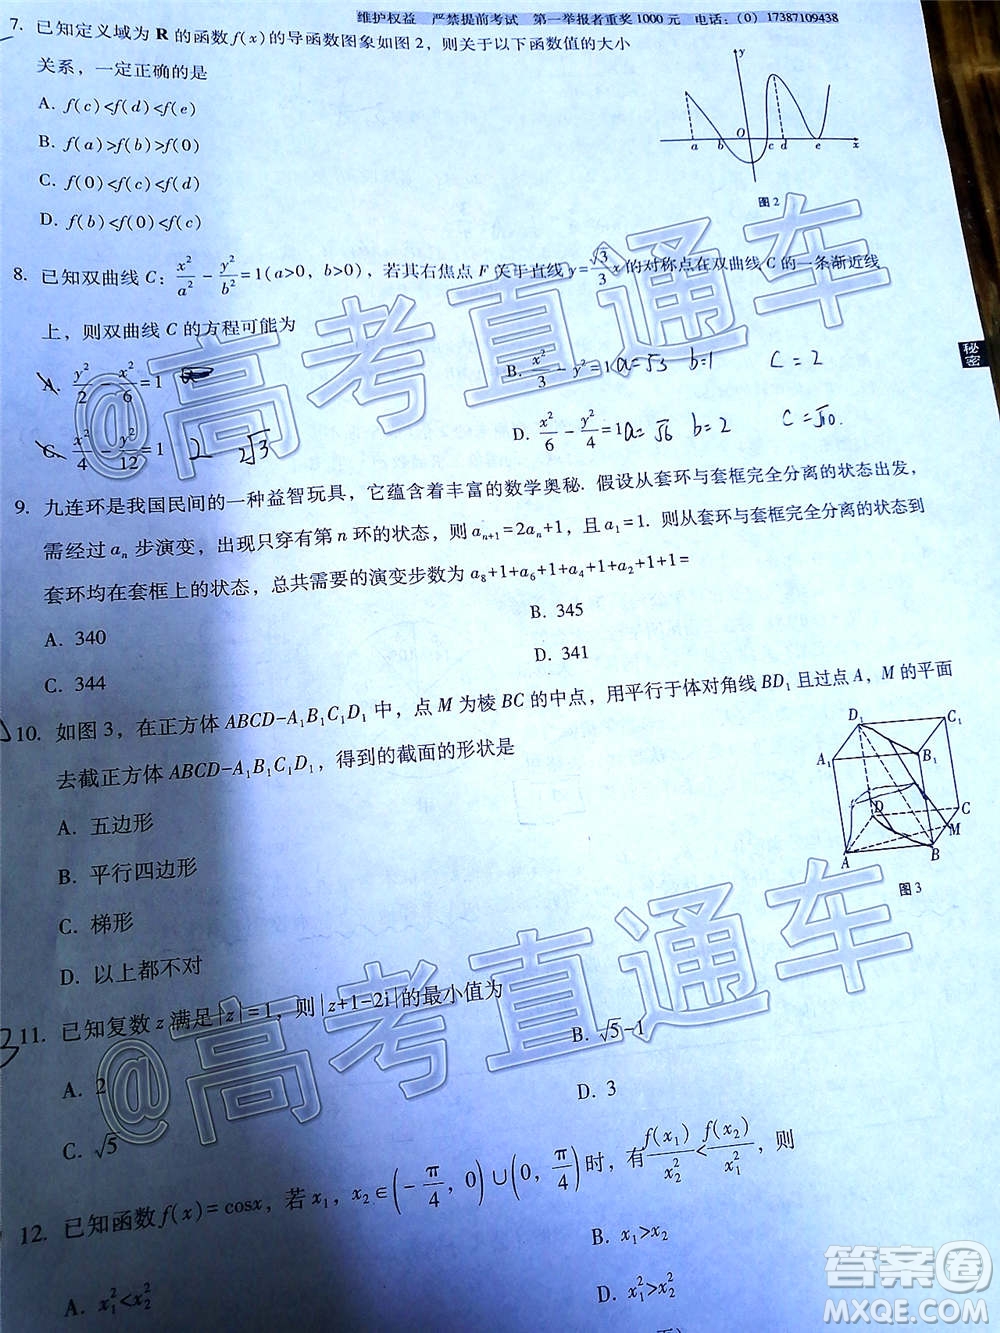 维护权益 严禁提前考试 第一举报者重奖1000元 电话:(0)17387109438
7. 已知定义域为 R 的函数 f(x) 的导函数图象如图 2,则关于以下函数值的大小
关系,一定正确的是
A. f(c)<f(d)<f(e)
B. f(a)>f(b)>f(0)
C. f(0)<f(c)<f(d)
D. f(b)<f(0)<f(c)
y
a b O c d e x
图 2
8. 已知双曲线 C:x²/a² - y²/b² = 1(a>0, b>0),若其右焦点 F 关于直线 y=√3/3 x 的对称点在双曲线 C 的一条渐近线
上,则双曲线 C 的方程可能为
A. y²/2 - x²/6 = 1
B. x²/3 - y² = 1 a=√3 b=1 c=2
C. x²/4 - y²/12 = 1 2 2√3
D. x²/6 - y²/4 = 1 a=√6 b=2 c=√10.
秘密
9. 九连环是我国民间的一种益智玩具,它蕴含着丰富的数学奥秘. 假设从套环与套框完全分离的状态出发,
需经过 aₙ 步演变,出现只穿有第 n 环的状态,则 aₙ₊₁=2aₙ+1,且 a₁=1. 则从套环与套框完全分离的状态到
套环均在套框上的状态,总共需要的演变步数为 a₈+1+a₆+1+a₄+1+a₂+1+1=
A. 340
B. 345
C. 344
D. 341
10. 如图 3,在正方体 ABCD-A₁B₁C₁D₁ 中,点 M 为棱 BC 的中点,用平行于体对角线 BD₁ 且过点 A,M 的平面
去截正方体 ABCD-A₁B₁C₁D₁,得到的截面的形状是
A. 五边形
B. 平行四边形
C. 梯形
D. 以上都不对
D₁ C₁
A₁ B₁
D C
M
A B
图 3
11. 已知复数 z 满足 |z|=1,则 |z+1-2i| 的最小值为
A. 2
B. √5-1
C. √5
D. 3
12. 已知函数 f(x)=cosx,若 x₁,x₂∈(-π/4, 0)∪(0, π/4) 时,有 f(x₁)/x₂² < f(x₂)/x₁²,则
A. x₁²<x₂²
B. x₁>x₂
D. x₁²>x₂²
@高考直通车
@高考直通车
答案圈
MXQE.COM